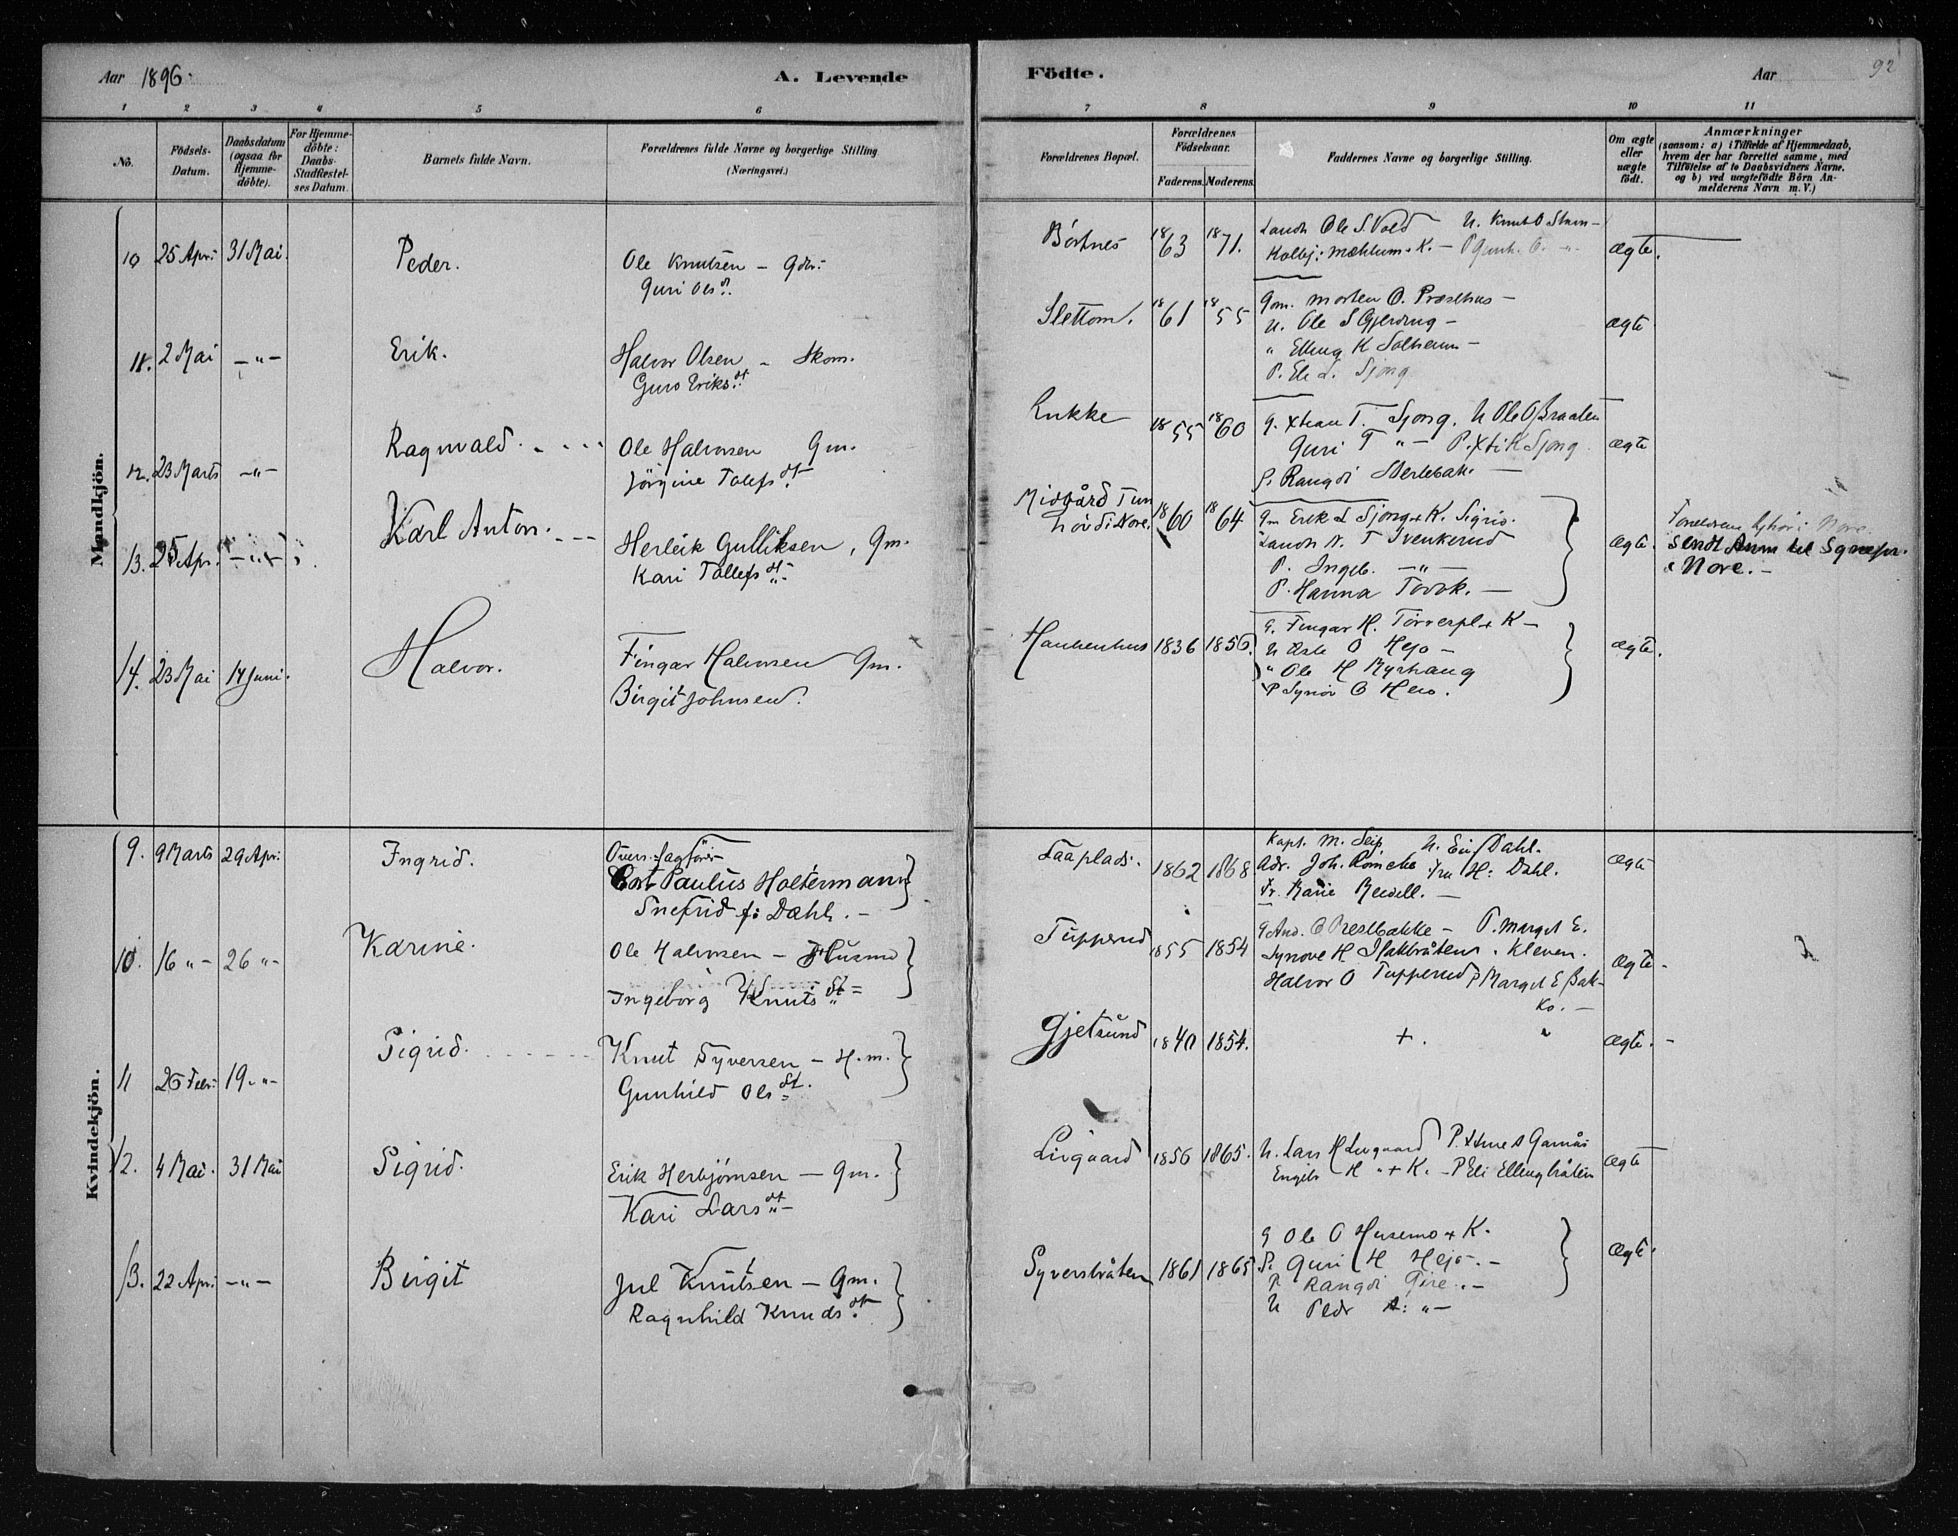 Aar 1896.
A. Levende
Födte.
Aar
92
1 2 3 4 5 6 7 8 9 10 11
No.
Födsels-
Datum.
Daabsdatum
(ogsaa for
Hjemme-
döbte).
For Hjemme-
döbte:
Daabs-
Stadfæstel-
ses Datum.
Barnets fulde Navn.
Forældrenes fulde Navne og borgerlige Stilling
(Næringsvei.)
Forældrenes Bopæl.
Forældrenes
Födselsaar.
Faderens. Moderens.
Faddernes Navne og borgerlige Stilling.
Om ægte
eller
uægte
födt.
Anmærkninger
(saasom: a) i Tilfælde af Hjemmedaab,
hvem der har forrettet samme, med
Tilföielse af to Daabsvidners Navne.
og b) ved uægtefödte Börn An-
melderens Navn m. V.)
Mandkjön.
10 25 Apr: 31 Mai. Peder.
Ole Knutsen – Gdbr:
Guri Olsdt.
Börtnes 1863 1871.
Ole S Vold U. Knut O
ægte.
11. 2 Mai –"– Erik.
Halvor Olsen – Skom.
Guro Eriksdt.
Slettom. 1861 1855
Gm. Morten O. Præsthus –
U. Ole S Gjerding –
" Elling K Solheim –
P. Eli L. Sjong
ægte
12. 23 Marts –"– Ragnvald.
Ole Halvorsen Gm.
Jörgine Tolefsdt.
Rukke 1855 1860
G. Xtian T. Sjong. U Ole O Braaten
Guri T "– P. Xti K Sjong
P. Rangdi
ægte
13. 25 Apr. –"– Karl Anton.
Herleik Gulliksen, Gm.
Kari Tollefsdt.
Midgård Tun
hövd i Nore. 1860 1864
Gm Erik L Sjong + K. Sigrid.
N. T
P. Ingeb. –"–
P. Hanna
ægte.
i Nore.–
14. 23 Mai 14 Juni. Halvor.
Fingar Halvorsen Gm.
Birgit Johnsen.
1836 1856.
G. Fingar H. + K –
U O Hejo –
" Ole H Myrhaug
P Synöv O Hejo.
ægte.
Kvindekjön.
9. 9 Marts 29 Apr: Ingrid.
Overs:
Paulus Holtermann
Snefrid f: Dahl. –
Saaplads. 1862 1868
Kapt. M. Seip. U. Ei Dahl.
Adr. Joh. fru H: Dahl.
Fr. Marie –
ægte
10. 16 "– 26 "– Karine.
Ole Halvorsen – Husmd
Ingeborg Knutsdt =
Tupperud 1855 1854
G And. O Prestbakke – P. Margit E.
Synove H Islakbråten. Kleven.
Halvor O Tupperud P Margit E Bak-
ko. –
ægte –
11 26 Febr: 19.–"– Sigrid.
Knut Syversen – H.m.
Gunhild Olsdt.
Gjetsund 1840 1854.
+. "
ægte. –
12. 4 Mai. 31 Mai Sigrid.
Erik Herbjörnsen – Gm.
Kari Larsdt –
Livgaard 1856 1865.
U. Lars H Livgaard P. Arne A Garnås
Engeb H " + K. – P Eli Ellingbråten
ægte
13. 22 Apr: –"– Birgit
Jul Knutsen – Gm.
Ragnhild Knudsdt.
Syverstråten 1861 1865
G Ole O Husemo + K.
P. Guri H Hejo. –
P. Rangdi Gire. –
U Pedr A: "–
ægte.